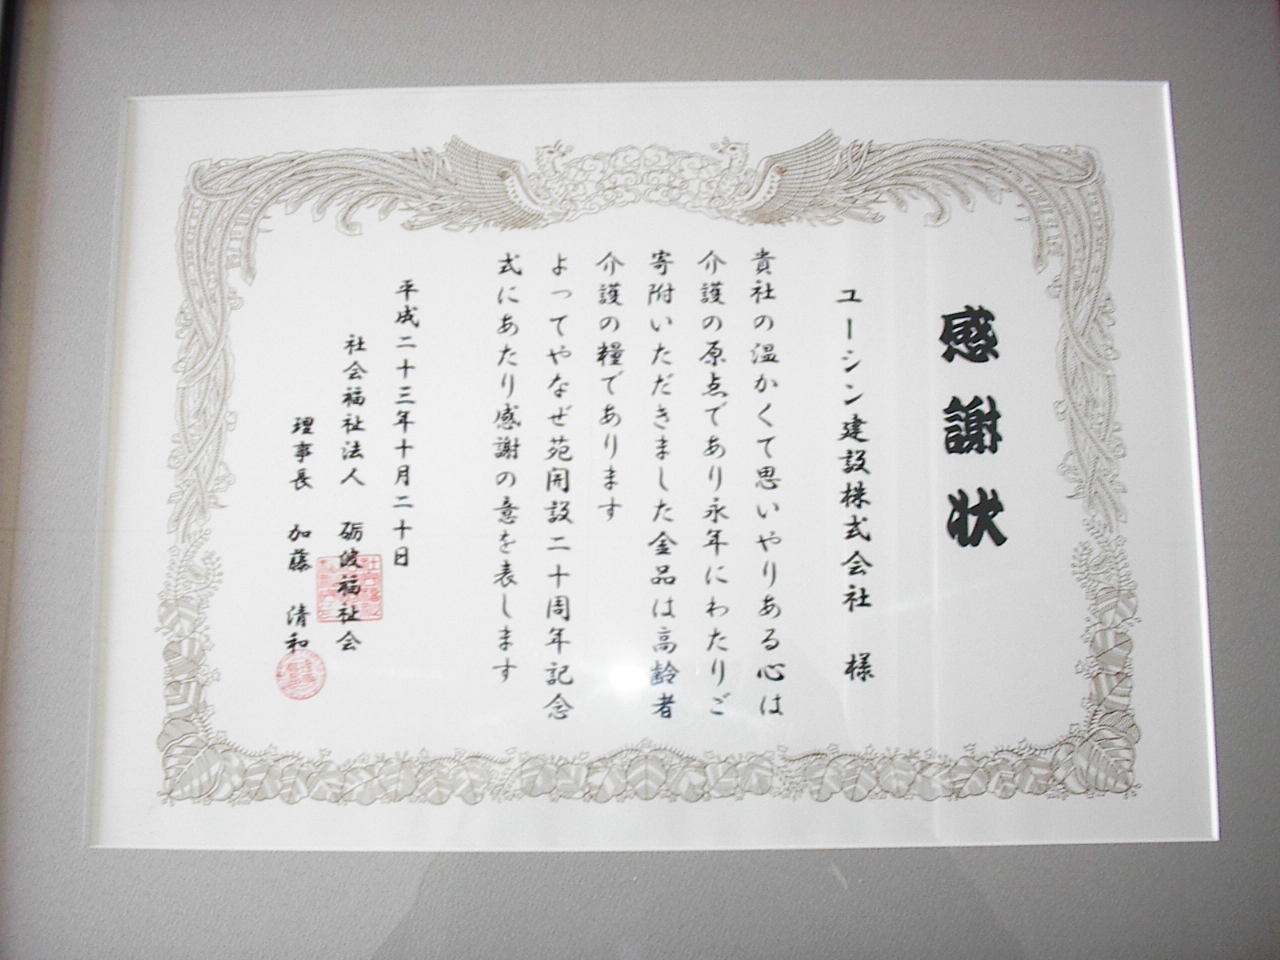 感謝状
ユーシン建設株式会社 様
貴社の温かくて思いやりある心は
介護の原点であり永年にわたりご
寄附いただきました金品は高齢者
介護の糧であります
よってやなぜ苑開設二十周年記念
式にあたり感謝の意を表します
平成二十三年十月二十日
社会福祉法人 砺波福祉会
理事長 加藤 清和